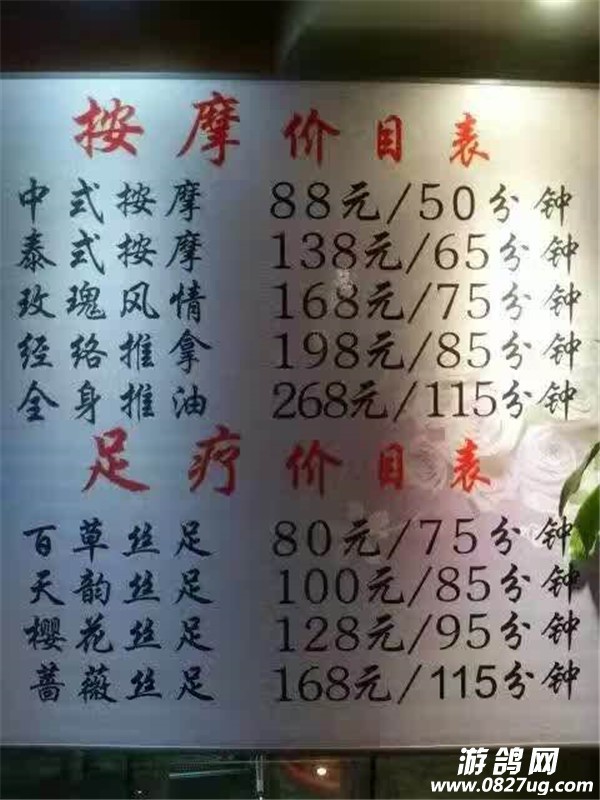 按摩价目表
中式按摩 88元/50分钟
泰式按摩 138元/65分钟
玫瑰风情 168元/75分钟
经络推拿 198元/85分钟
全身推油 268元/115分钟
足疗价目表
百草丝足 80元/75分钟
天韵丝足 100元/85分钟
樱花丝足 128元/95分钟
蔷薇丝足 168元/115分钟
游鸽网
www.0827ug.com